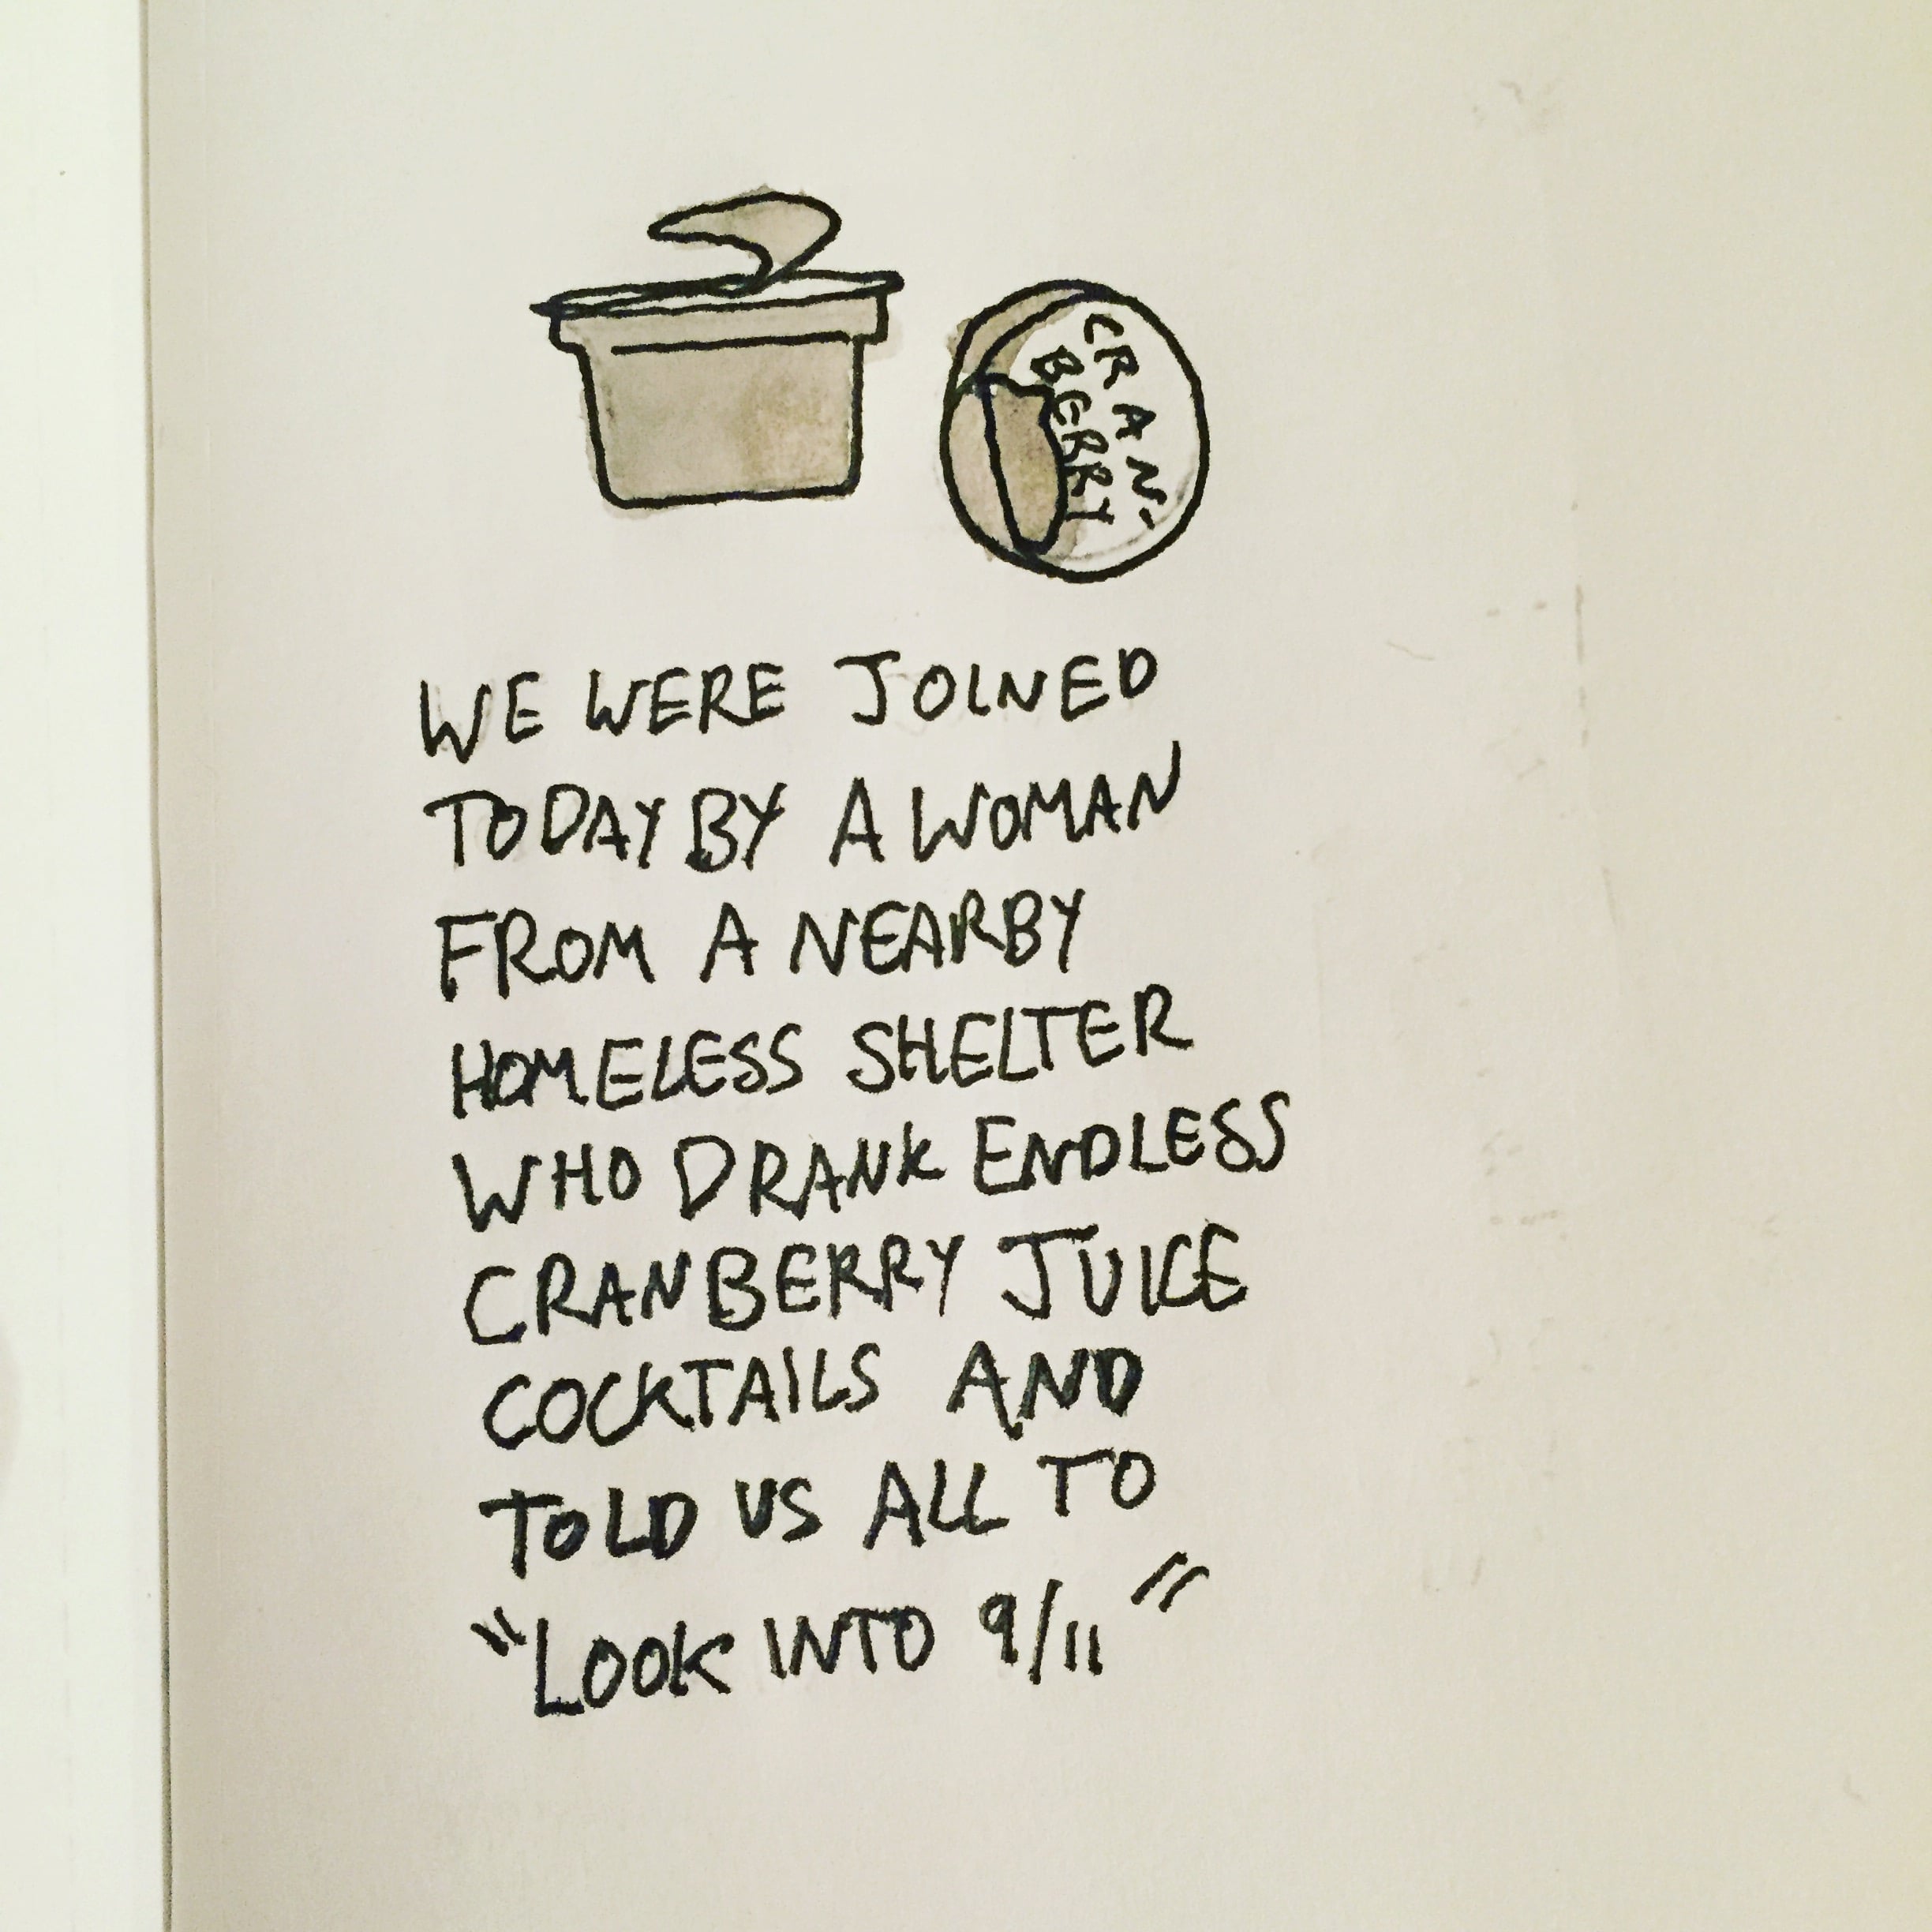 CRAN-
BERRY
WE WERE JOINED
TODAY BY A WOMAN
FROM A NEARBY
HOMELESS SHELTER
WHO DRANK ENDLESS
CRANBERRY JUICE
COCKTAILS AND
TOLD US ALL TO
"LOOK INTO 9/11"